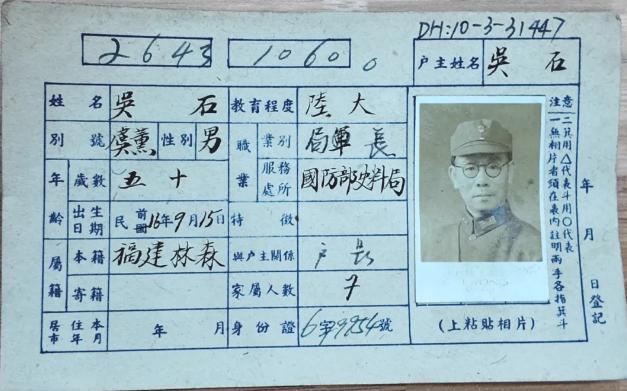 DH:10-3-31447
2643 1060。
戶主姓名 吳石
姓名 吳石 教育程度 陸大
別號 虞薰 性別 男 職業 業別 軍
年齡 歲數 五十 服務處所 國防部史料局
出生日期 民前國16年9月15日 特徵
屬籍 本籍 福建林森 與戶主關係 戶長
寄籍 家屬人數 7
居住本市年月 年 月 身份證 6字9954號
(上粘貼相片)
注意
一無相片者須在表內註明兩手各指箕斗
二箕用△代表斗用〇代表
年 月 日登記